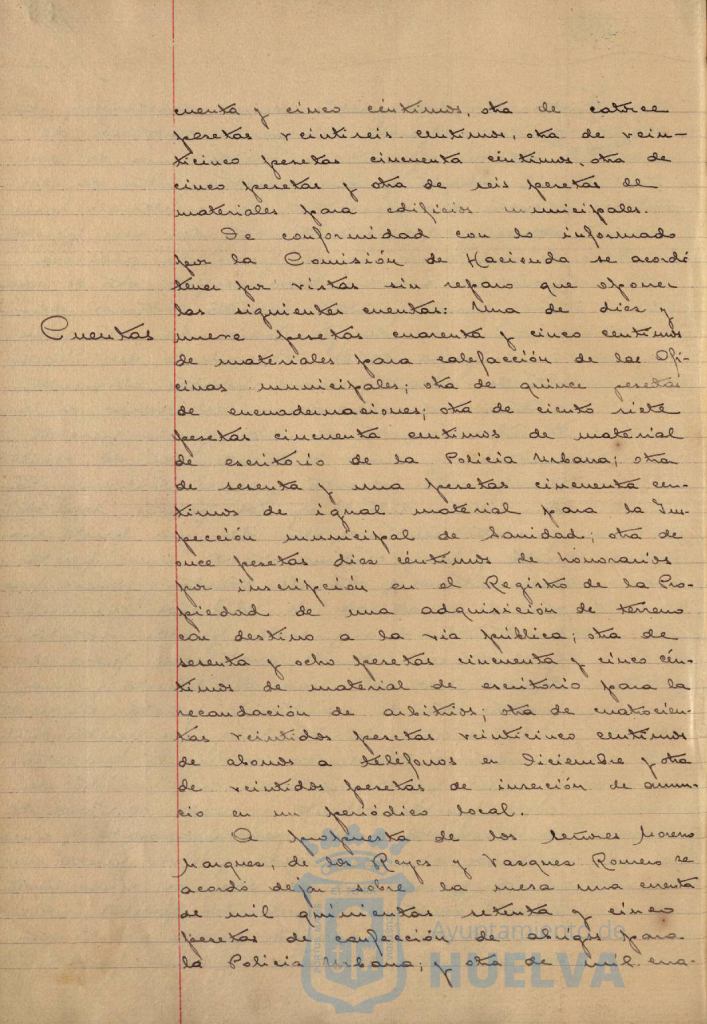 cuenta y cinco céntimos, otra de catorce
pesetas veintiseis centimos, otra de vein-
ticinco pesetas cincuenta céntimos, otra de
cinco pesetas y otra de seis pesetas de
materiales para edificios municipales.
De conformidad con lo informado
por la Comisión de Hacienda se acordó
tener por vistas sin reparo que oponer
las siguientes cuentas: Una de diez y
Cuentas
nueve pesetas cuarenta y cinco centimos
de materiales para calefacción de las Ofi-
cinas municipales; otra de quince pesetas
de encuadernaciones; otra de ciento siete
pesetas cincuenta centimos de material
de escritorio de la Policia Urbana; otra
de sesenta y una pesetas cincuenta cen-
timos de igual material para la Ins-
pección municipal de Sanidad; otra de
once pesetas diez céntimos de honorarios
por inscripción en el Registro de la Pro-
piedad de una adquisición de terreno
con destino a la via pública; otra de
sesenta y ocho pesetas cincuenta y cinco cén-
timos de material de escritorio para la
recaudación de arbitrios; otra de cuatrocien-
tas veintidos pesetas veinticinco centimos
de abonos a teléfonos en Diciembre y otra
de veintidos pesetas de inserción de anun-
cio en un periódico local.
A propuesta de los Señores Moreno
Marquez, de los Reyes y Vazquez Romero se
acordó dejar sobre la mesa una cuenta
de mil quinientas setenta y cinco
pesetas de confección de abrigos para
la Policia Urbana; y otra de mil cua-
Ayuntamiento de
HUELVA